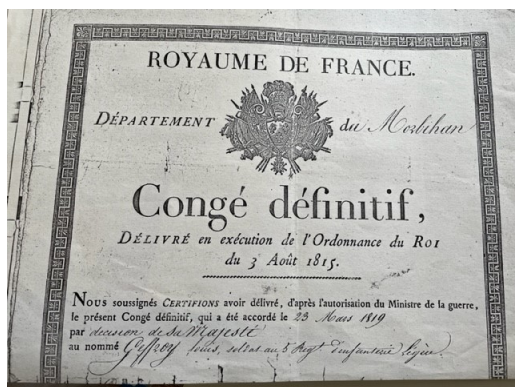 ROYAUME DE FRANCE.
DÉPARTEMENT du Morbihan
Congé définitif,
DÉLIVRÉ en exécution de l'Ordonnance du ROI
du 3 Août 1815.
NOUS soussignés CERTIFIONS avoir délivré, d'après l'autorisation du Ministre de la guerre,
le présent Congé définitif, qui a été accordé le 23 Mars 1819
par decision de Sa Majesté
au nommé Geffroy Louis, soldat au 5e Regt. d'infanterie Ligne.